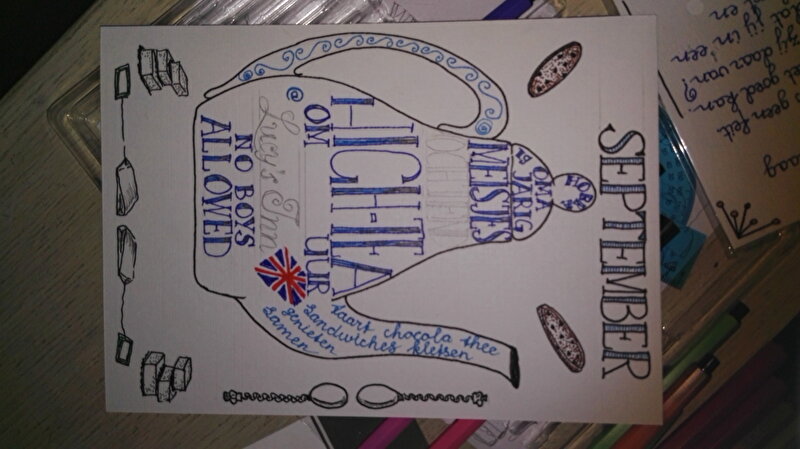 SEPTEMBER
OMA
JARIG
MEISJES
HIGH-TEA
OM
UUR
Lucy's Inn
NO BOYS
ALLOWED
taart chocola thee
sandwiches kletsen
genieten
samen
geen feit
daar van?
jij in 'een
goed kan